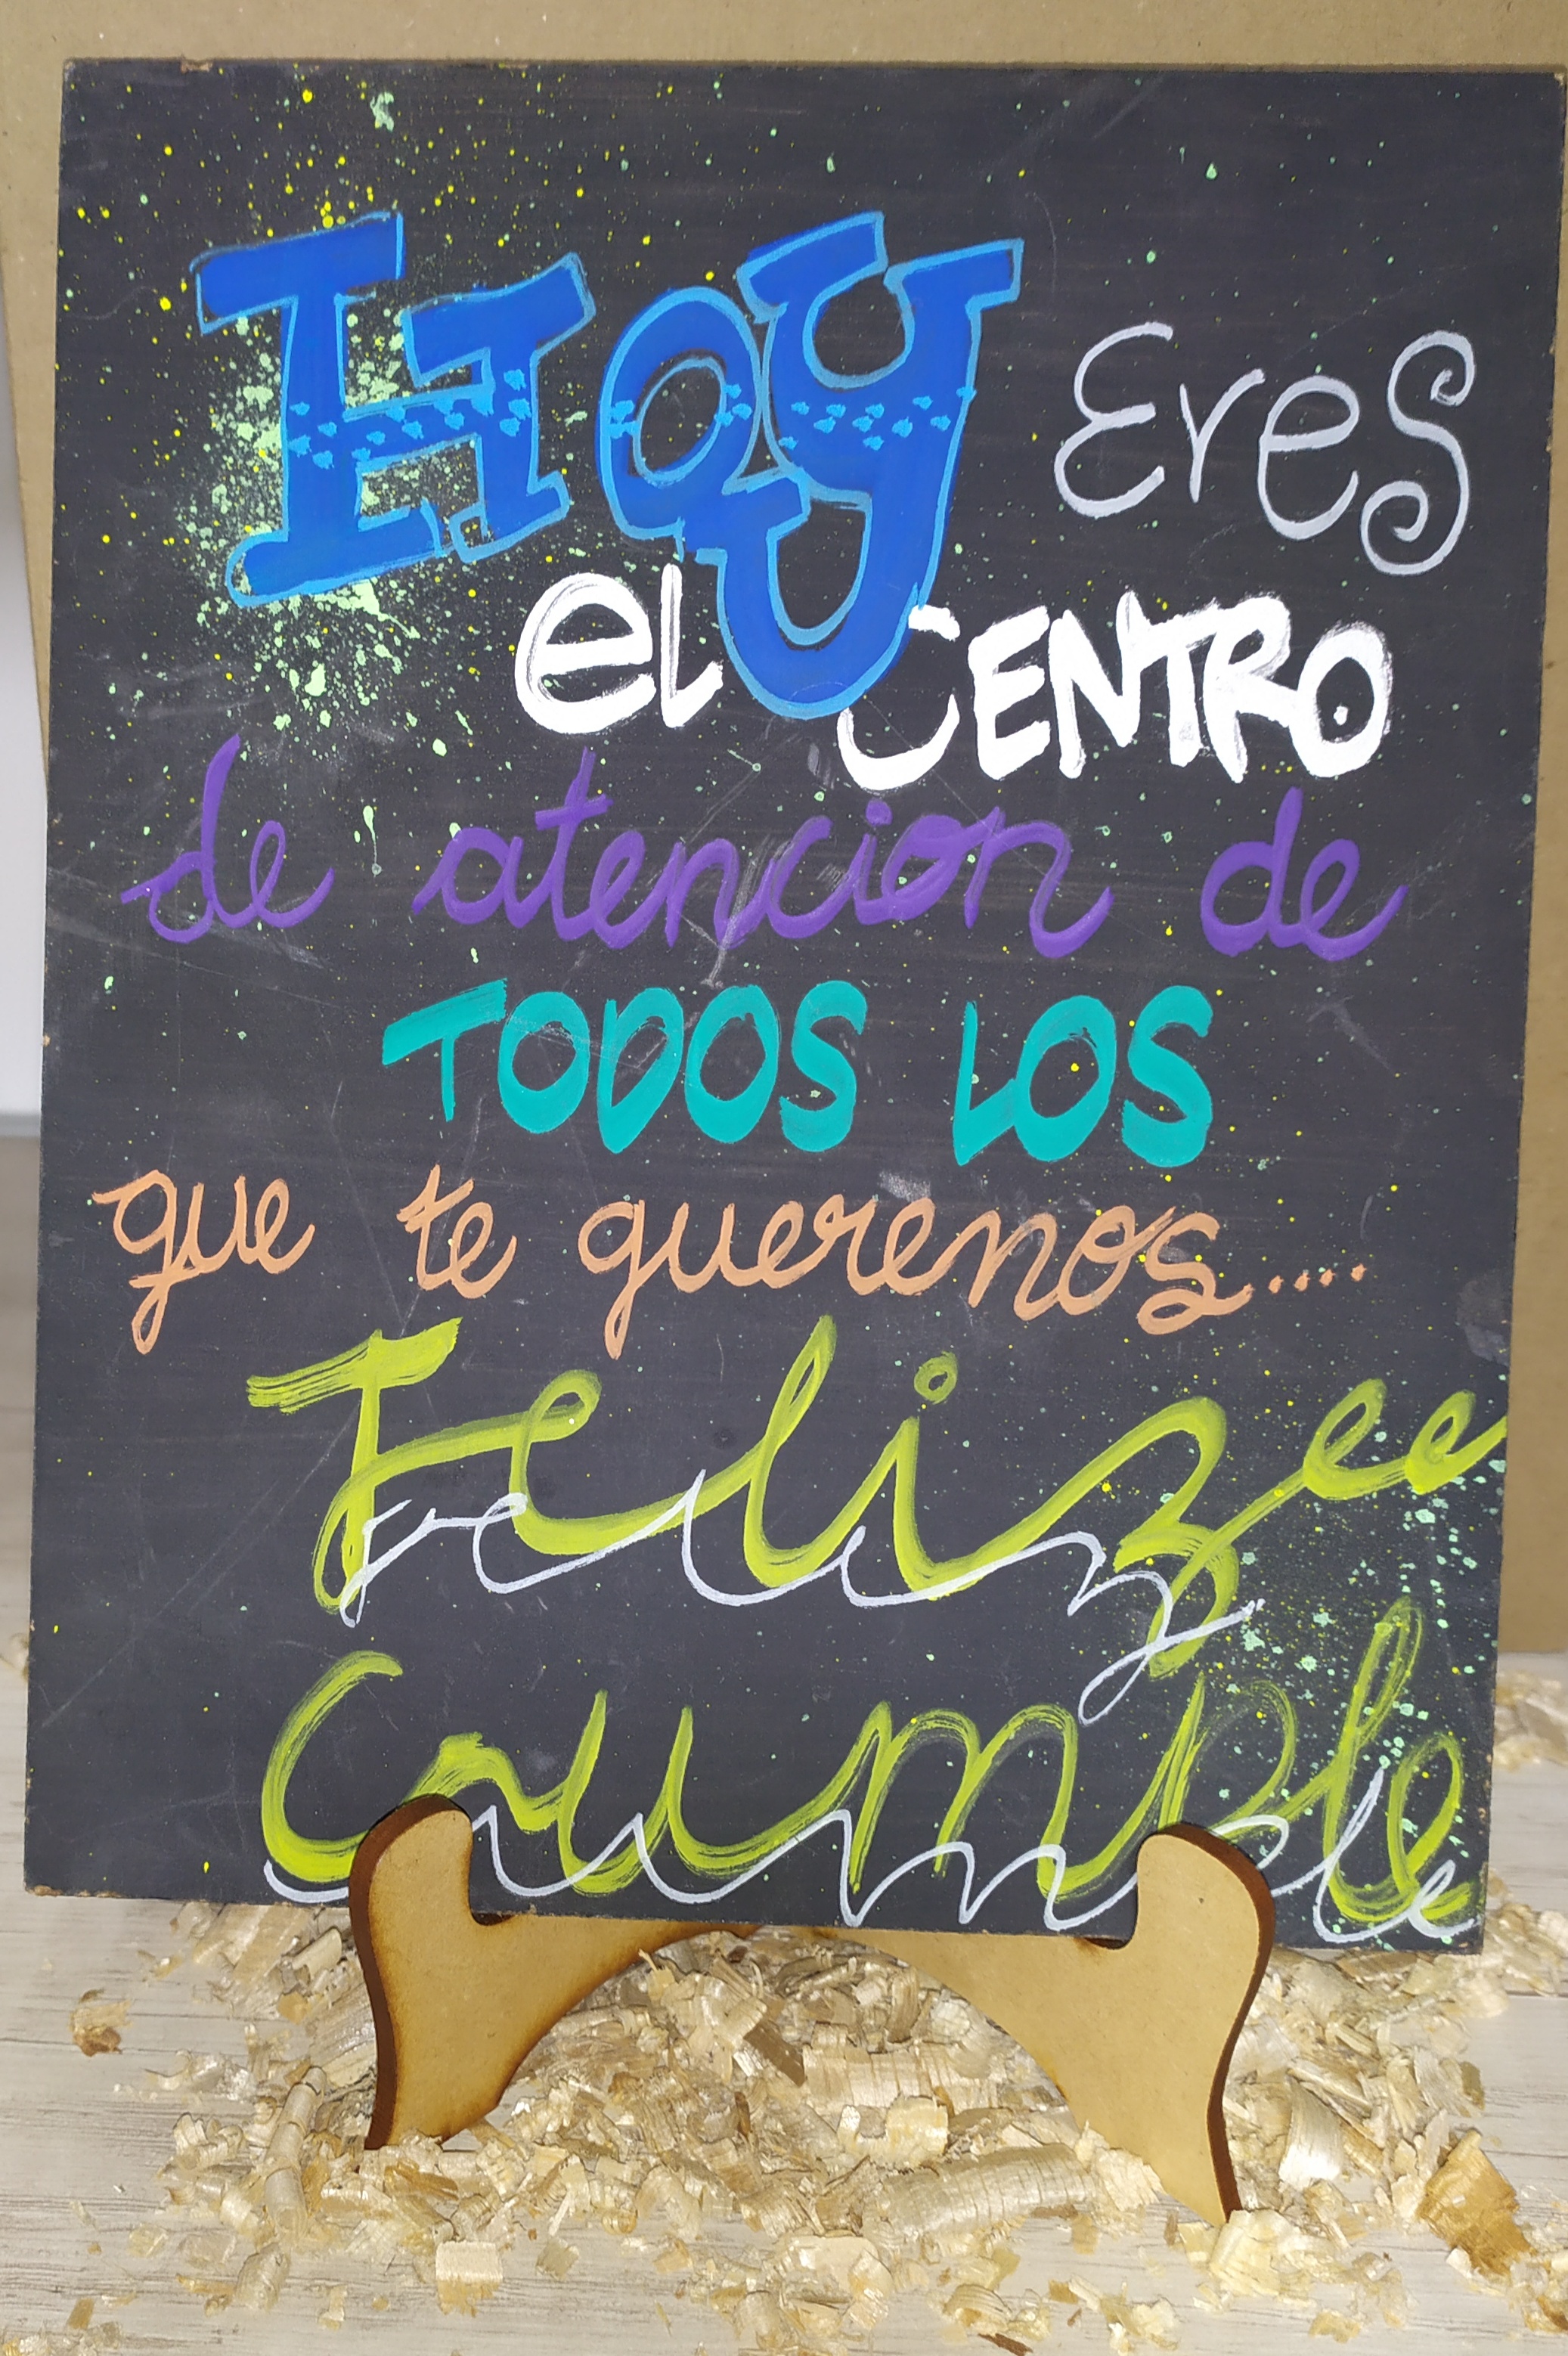 Hoy Eres
el CENTRO
de atencion de
TODOS LOS
que te querenos.....
Felizee
Cumple